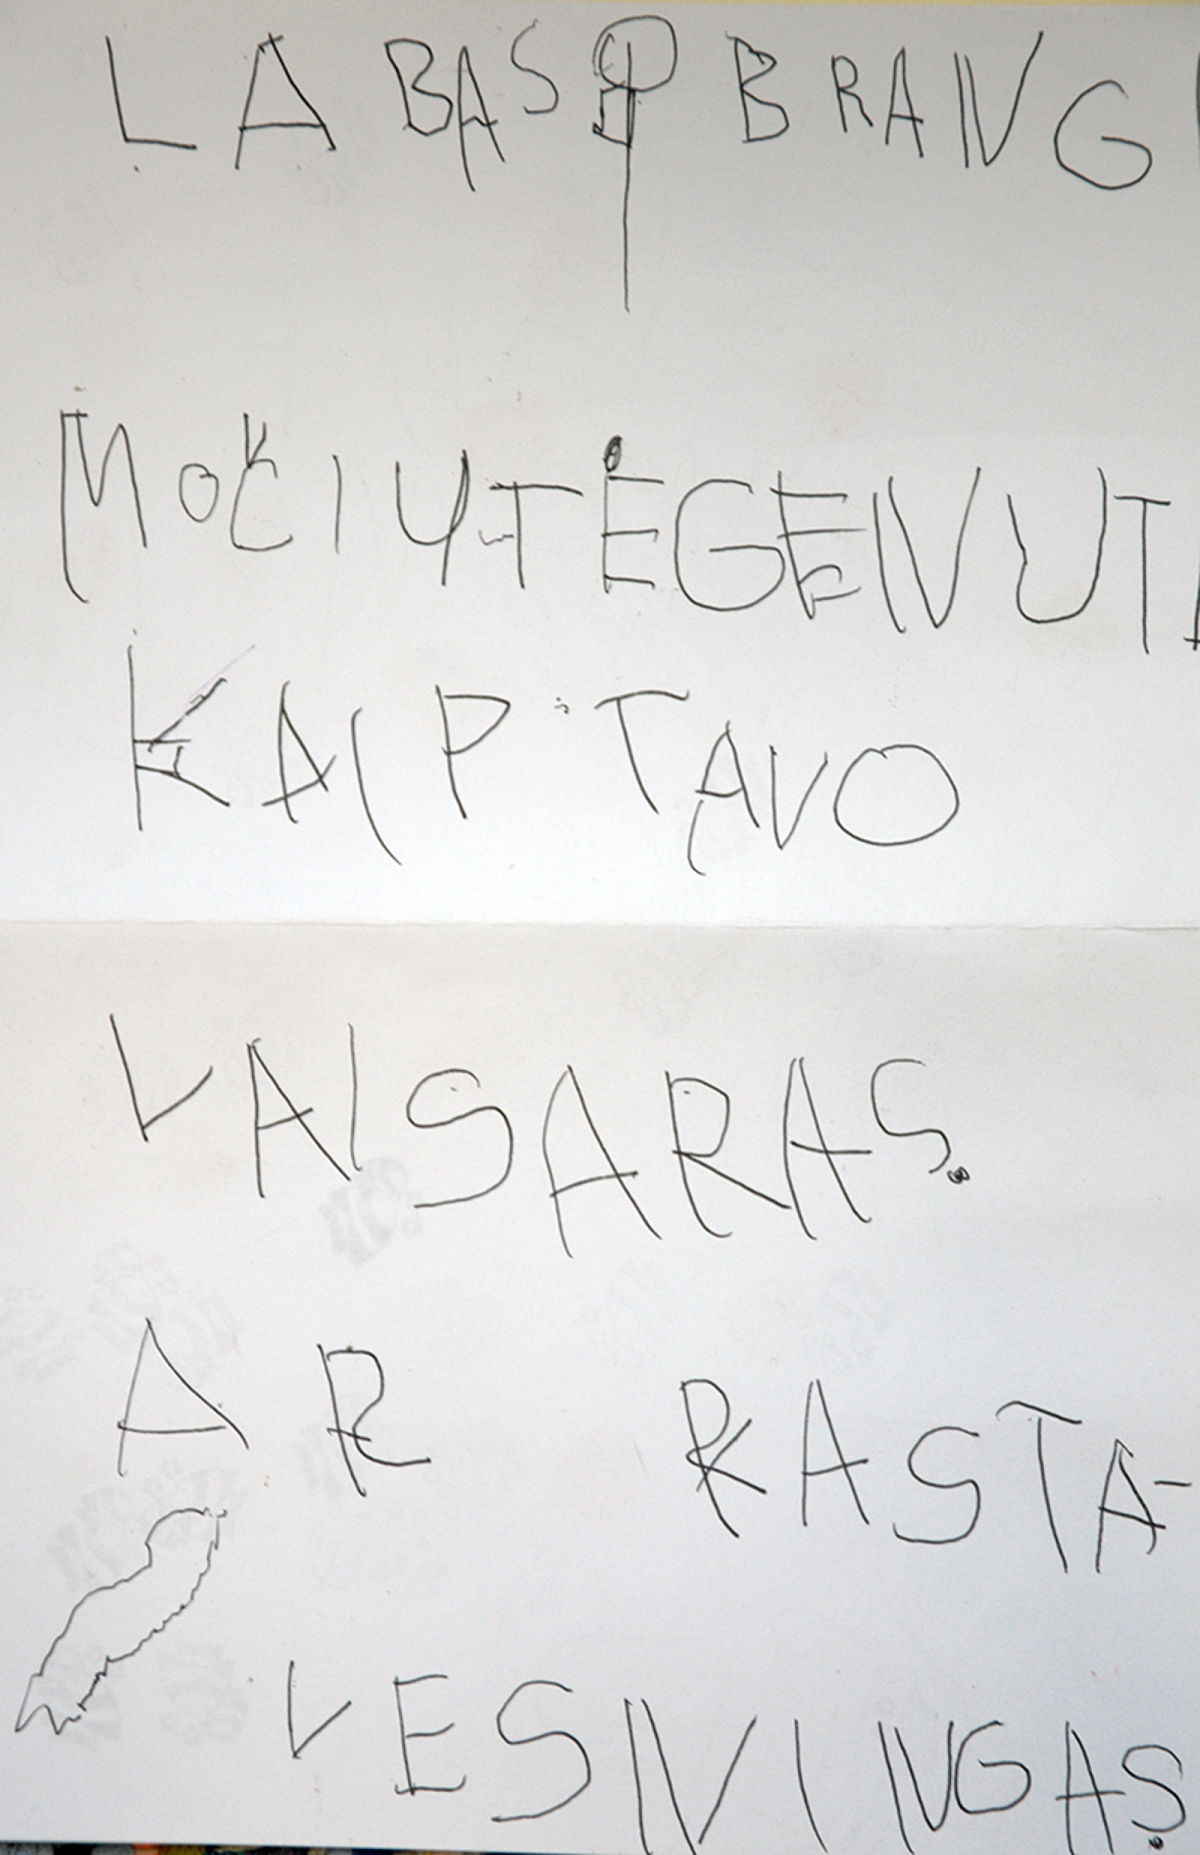 LABAS BRANGI
MOČIUTĖ GENUTI
KAIP TAVO
VAISARAS.
AR RASTA-
VESNINGAS.